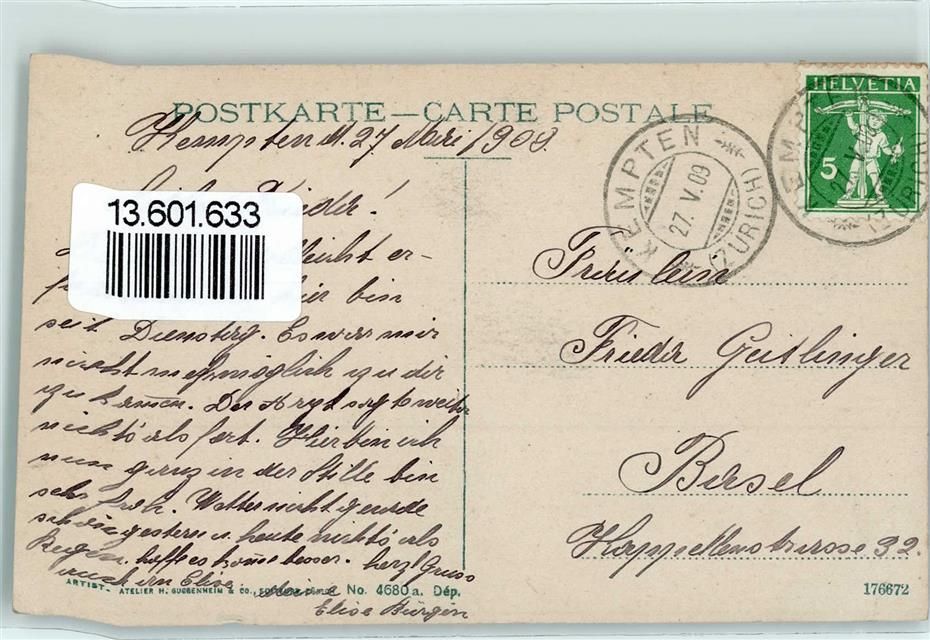 POSTKARTE — CARTE POSTALE
Kempten d. 27 Mai 1909
13.601.633
Frieda!
er-
hier bin
seit Dienstag. Es war mir
nicht mehr möglich zu dir
zu kommen. Der Arzt sagte weiter
nichts als fort. Hier bin ich
nun ganz in der Stille bin
sehr froh. Wetter nicht gerade
schön gestern u. heute nichts als
Regen. hoffe es komme besser. herzl Gruss
auch an Elise
Elise Bürgin
ARTIST. ATELIER H. GUGGENHEIM & CO., No. 4680 a. Dép.
KEMPTEN
27. V. 09
(ZÜRICH)
HELVETIA
5
KEMPTEN
27. V. 09
(ZÜRICH)
Fräulein
Frieda Geitlinger
Basel
Happellenstrasse 32.
176672